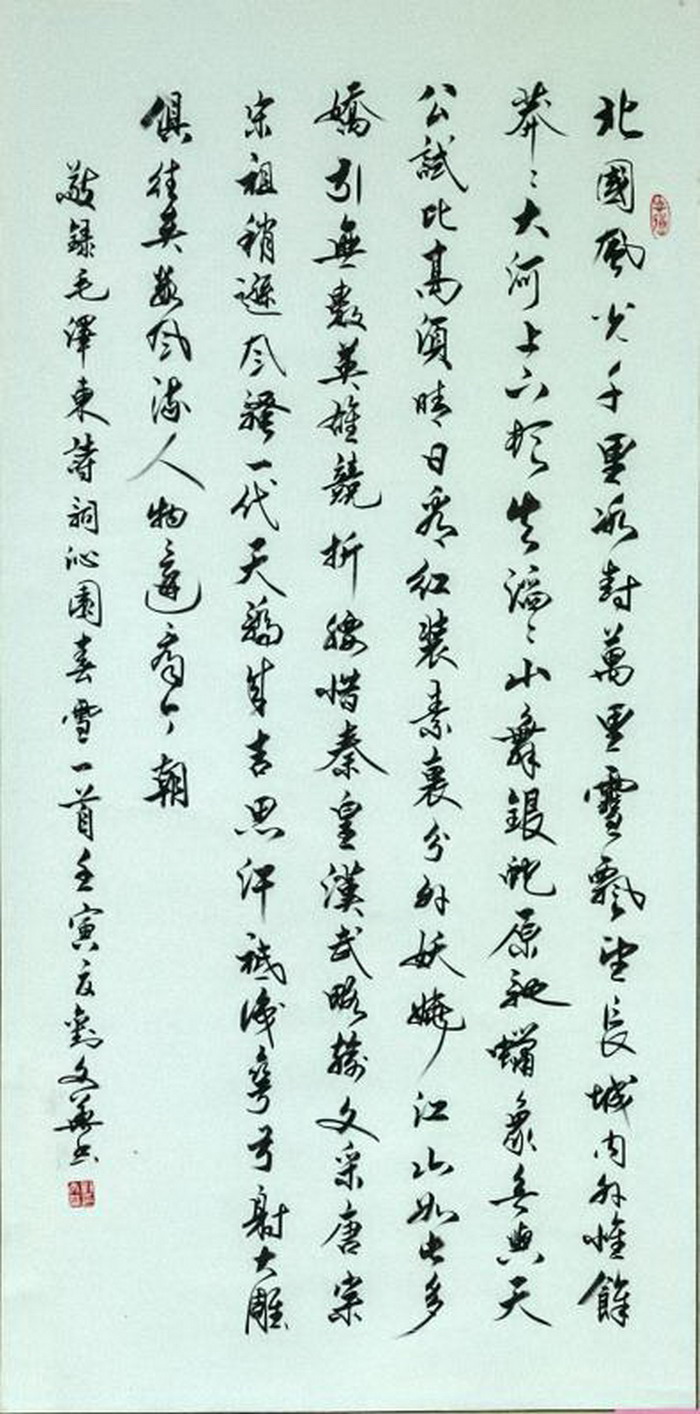 北國風光千里冰封萬里雪飄望長城内外惟餘
莽〻大河上下頓失滔〻山舞銀蛇原馳蠟象欲與天
公試比高須晴日看紅裝素裹分外妖嬈江山如此多
嬌引無數英雄競折腰惜秦皇漢武略輸文采唐宗
宋祖稍遜風騷一代天驕成吉思汗祗識彎弓射大雕
俱往矣數風流人物還看今朝
敬録毛澤東詩詞沁園春雪一首壬寅夏劉文華书